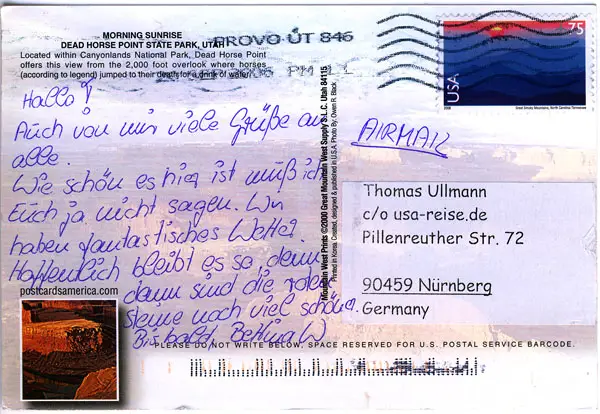 MORNING SUNRISE
DEAD HORSE POINT STATE PARK, UTAH
Located within Canyonlands National Park, Dead Horse Point
offers this view from the 2,000 foot overlook where horses
(according to legend) jumped to their deaths for a drink of water.
PROVO UT 846
PM
75
USA
Great Smoky Mountains, North Carolina-Tennessee
Hallo!
Auch von mir viele Grüße an
alle.
Wie schön es hier ist muß ich
Euch ja nicht sagen. Wir
haben fantastisches Wetter.
Hoffentlich bleibt es so, denn
dann sind die roten
Steine noch viel schöner.
Bis bald Bettina W
AIRMAIL
Mountain West Prints ©2000 Great Mountain West Supply S.L.C. Utah 84115
Printed in Korea. Created, designed & published in U.S.A. Photo By: Owen R. Black
Thomas Ullmann
c/o usa-reise.de
Pillenreuther Str. 72
90459 Nürnberg
Germany
postcardsamerica.com
PLEASE DO NOT WRITE BELOW, SPACE RESERVED FOR U.S. POSTAL SERVICE BARCODE.